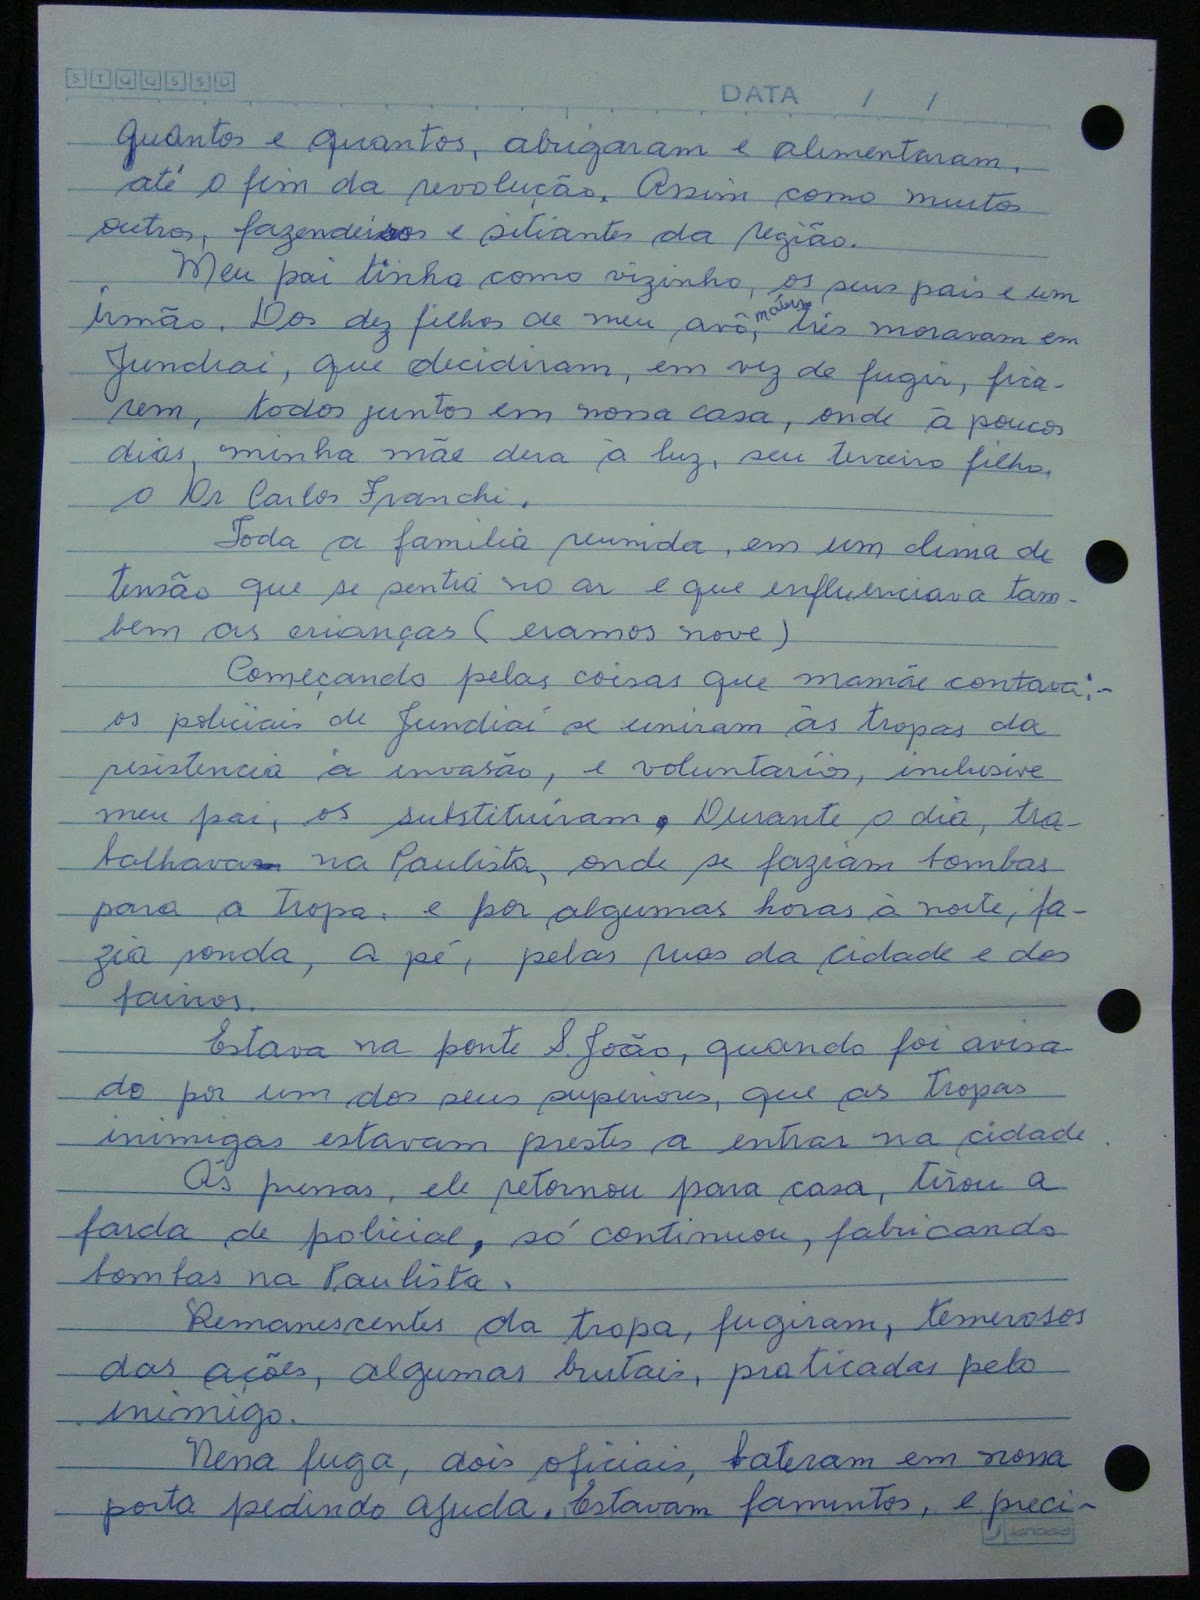 S T Q Q S S D
DATA / /
quantos e quantos, abrigaram e alimentaram,
até o fim da revolução. Assim como muitos
outros, fazendeiros e sitiantes da região.
Meu pai tinha como vizinho, os seus pais e um
irmão. Dos dez filhos de meu avô, materno três moravam em
Jundiai, que decidiram, em vez de fugir, fica-
rem, todos juntos em nossa casa, onde à poucos
dias, minha mãe dera à luz, seu terceiro filho,
o Dr Carlos Franchi.
Toda a familia reunida, em um clima de
tensão que se sentia no ar e que influenciava tam-
bem as crianças (eramos nove)
Começando pelas coisas que mamãe contava:-
os policiais de Jundiaí se uniram às tropas da
resistencia à invasão, e voluntarios, inclusive
meu pai, os substituíram. Durante o dia, tra-
balhava na Paulista, onde se faziam bombas
para a tropa. e por algumas horas à noite, fa-
zia ronda, a pé, pelas ruas da cidade e dos
bairros.
Estava na ponte S. João, quando foi avisa-
do por um dos seus superiores, que as tropas
inimigas estavam prestes a entrar na cidade.
Ás pressas, ele retornou para casa, tirou a
farda de policial, só continuou, fabricando
bombas na Paulista.
Remanescentes da tropa, fugiram, temerosos
das ações, algumas brutais, praticadas pelo
inimigo.
Nessa fuga, dois oficiais, bateram em nossa
porta pedindo ajuda. Estavam famintos, e preci-
jandaia